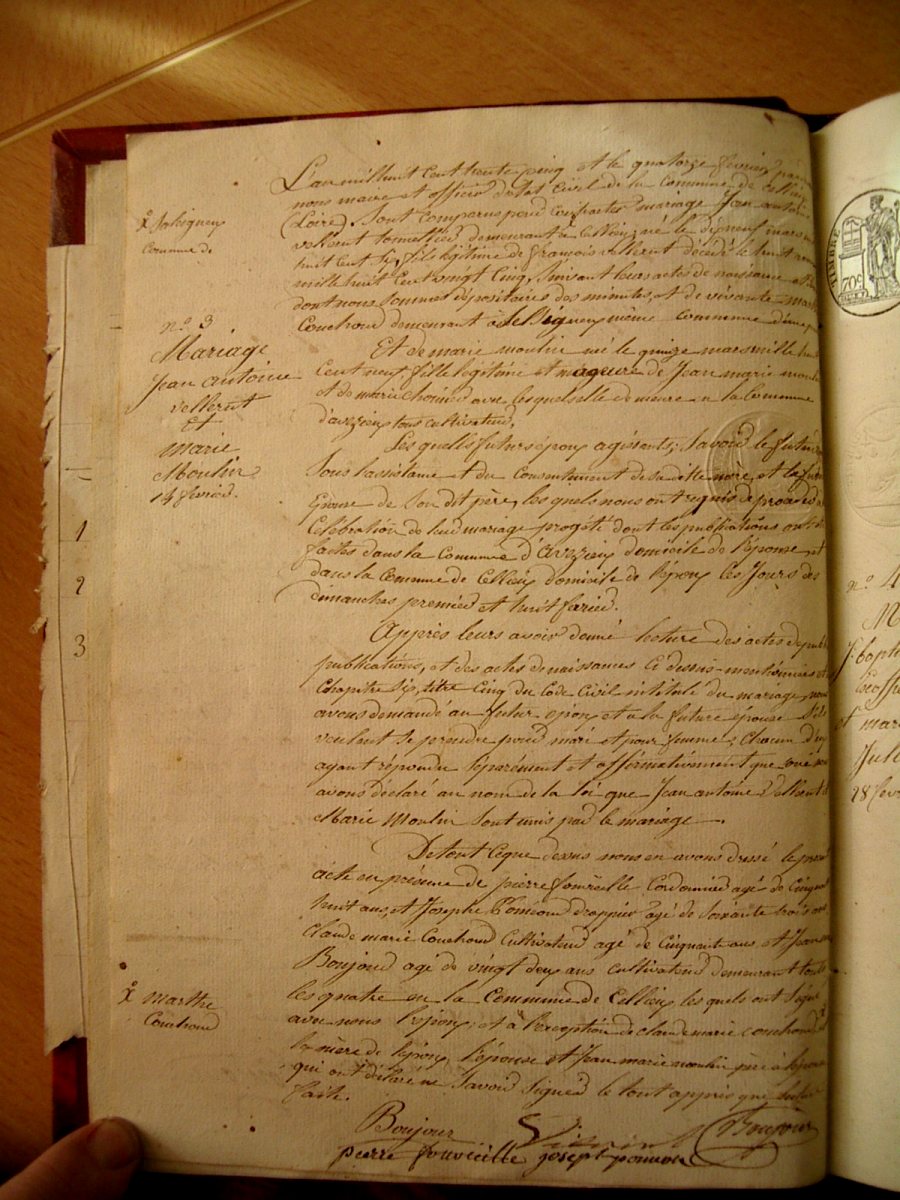 L'an mil huit cent trente cinq et le quatorze fevrier par
nous maire et officier de l'etat civil de la commune de Cellieu
(Loire). Sont comparus pour contracter mariage Jean antoine
vellerut tonnellier demeurant à Cellieu, né le dix neuf mars
huit cent six fils légitime de françois vellerut décédé le huit
mille huit cent vingt cinq, suivant leurs actes de naissance et
dont nous sommes dépositaires des minutes, et de vivante
Couchoud demeurant à même commune
Et de marie moulin né le quinze mars mille huit
cent neuf, fille légitime et mageure de Jean marie
et de marie avec lesquels elle demeure en la Commune
d'avezieux tous cultivateurs.
Lesquels futurs époux agissants, savoir le futur
sous l'assistance et du consentement de sa ditte mère, et la future
Epouse de son dit père, lesquels nous ont requis de procéder
Célébration de leur mariage progété dont les publications ont
faites dans la Commune d'avezieux domicile de l'épouse, et
dans la Commune de Cellieu domicile de l'époux les jours des
dimanches premier et huit
Appres leurs avoir donné lecture des actes de
publications, et des actes de naissances ci dessus mentionnées et
Chapitre six, titre cinq du Code Civil intitulé du mariage, nous
avons demandé au futur epoux et a la future épouse s'ils
veulent se prendre pour mari et pour femme; chacun d'eux
ayant répondu séparément et affirmativement que oui
avons déclaré au nom de la loi que Jean antoine Vellerut
Marie Moulin sont unis par le mariage.
De tout ceque dessus nous en avons dressé le
acte en présence de pierre Cordonnier agé de Cinquante
huit ans, et Josephe agé de soixante trois ans
Claude marie Couchoud Cultivateur agé de cinquante ans et Jean
Boujour agé de vingt deux ans cultivateur demeurant tous
les quatre en la Commune de Cellieu, lesquels ont signé
avec nous l'époux, et à l'exception de claude marie couchoud
la mère de l'époux l'épouse et Jean marie moulin père à l'épouse
qui ont déclaré ne savoir signer le tout appres que lecture
faite.
Boujour
pierre
joseph
Commune de
n.° 3
Mariage
Jean antoine
vellerut
Et
marie
Moulin
14 fevrier.
1
2
3
marthe
Couchoud
TIMBRE
70c
n.° 4
J: bapte
et mar
28 fev